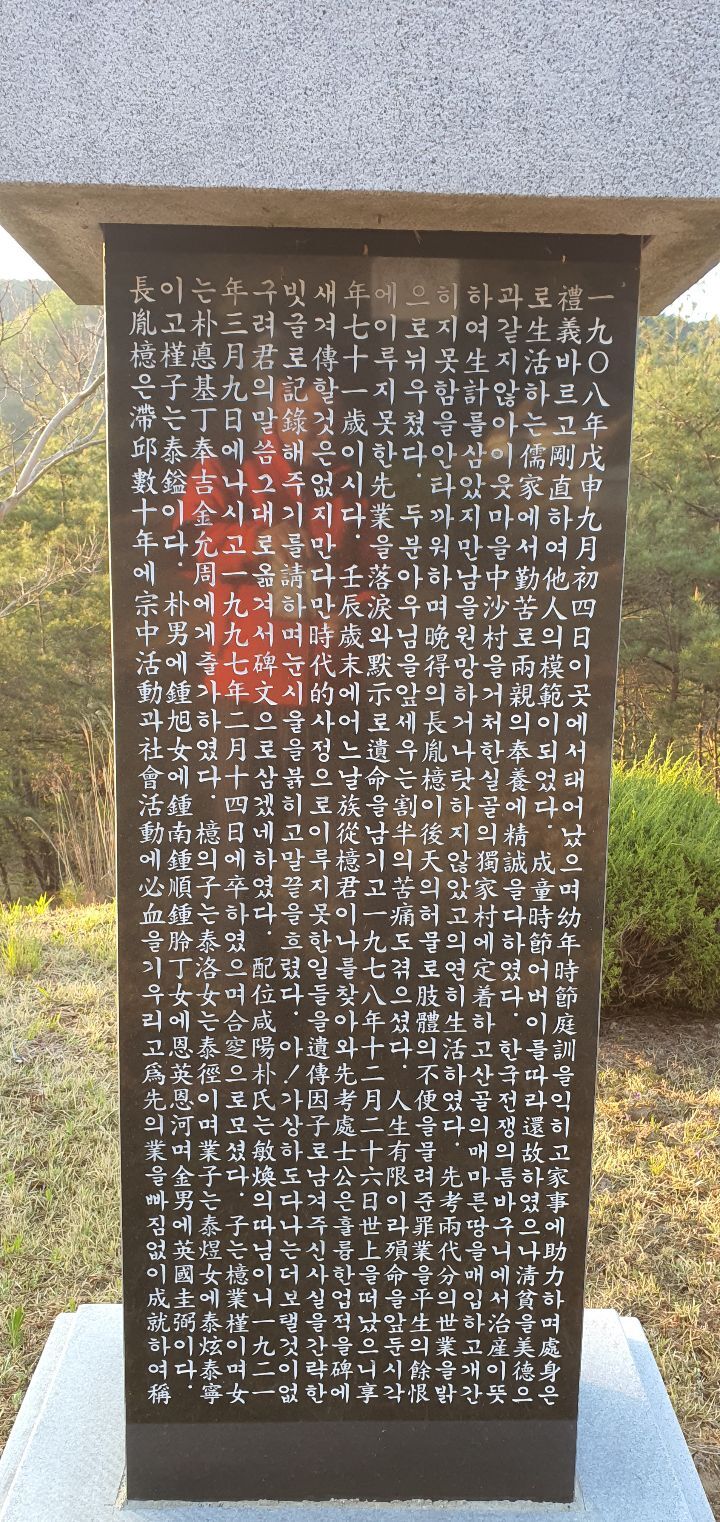 一九〇八年戊申九月初四日이곳에서태어났으며幼年時節庭訓을익히고家事에助力하며處身은
禮義바르고剛直하여他人의模範이되었다. 成童時節어버이를따라還故하였으나淸貧을美德으
로生活하는儒家에서勤苦로兩親의奉養에精誠을다하였다. 한국전쟁의틈바구니에서治産이뜻
과같지않아이웃마을中沙村을거처한실골의獨家村에定着하고산골의매마른땅을매입하고개간
하여生計를삼았지만남을원망하거나탓하지않았고의연히生活하였다. 先考兩代分의世業을밝
히지못함을안타까워하며晩得의長胤檍이後天의허물로肢體의不便을물려준罪業을平生의餘恨
으로뉘우쳤다. 두분아우님을앞세우는割半의苦痛도겪으셨다. 人生有限이라殞命을앞둔시각
에이루지못한先業을落淚와默示로遺命을남기고一九七八年十二月二十六日世上을떠났으니享
年七十一歲이시다. 壬辰歲末에어느날族從檍君이나를찾아와先考處士公은훌륭한업적을碑에
새겨傳할것은없지만다만時代的사정으로이루지못한일들을遺傳因子로남겨주신사실을간략한
빗글로記錄해주기를請하며눈시울을붉히고말끝을흐렸다. 아!가상하도다나는더보탤것이없
구려君의말씀그대로옮겨서碑文으로삼겠네하였다. 配位咸陽朴氏는敏煥의따님이니一九二一
年三月九日에나시고一九九七年二月十四日에卒하였으며合窆으로모셨다. 子는檍業槿이며女
는朴悳基丁奉吉金允周에게출가하였다. 檍의子는泰洛女는泰徑이며業子는泰煜女에泰炫泰寧
이고槿子는泰鎰이다. 朴男에鍾旭女에鍾南鍾順鍾朎丁女에恩英恩河며金男에英國圭弼이다.
長胤檍은滯邱數十年에宗中活動과社會活動에必血을기우리고爲先의業을빠짐없이成就하여稱